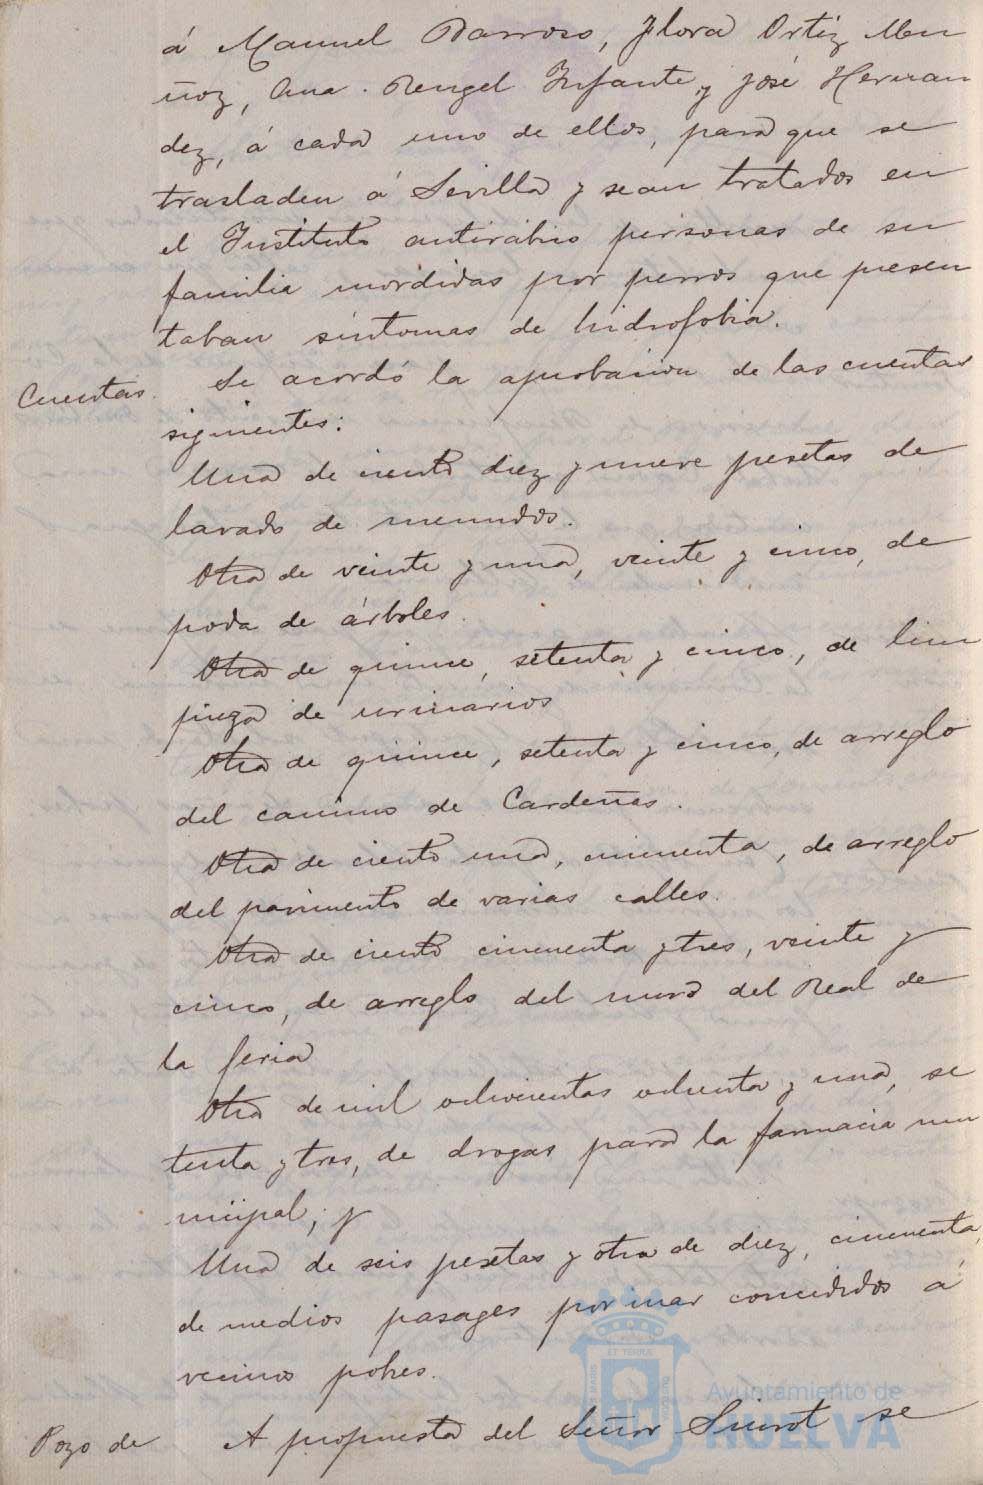 á Manuel Barroso, Flora Ortiz Mu
ñoz, Ana Rengel Infante y José Hernan
dez, á cada uno de ellos, para que se
trasladen á Sevilla y sean tratados en
el Instituto antirabico personas de su
familia mordidas por perros que presen
taban síntomas de hidrofobia.
Cuentas. Se acordó la aprobacion de las cuentas
siguientes:
Una de ciento diez y nueve pesetas de
lavado de menudos.
Otra de veinte y una, veinte y cinco, de
poda de árboles.
Otra de quince, setenta y cinco, de lim
pieza de urinarios
Otra de quince, setenta y cinco, de arreglo
del camino de Cardeñas.
Otra de ciento una, cincuenta, de arreglo
del pavimento de varias calles.
Otra de ciento cincuenta y tres, veinte y
cinco, de arreglo del muro del Real de
la feria
Otra de mil ochocientas ochenta y una, se
tenta y tres, de drogas para la farmacia mu
nicipal; y
Una de seis pesetas y otra de diez, cincuenta,
de medios pasages por mar concedidos á
vecinos pobres.
Pozo de A propuesta del Señor Siurot se
Ayuntamiento de
HUELVA